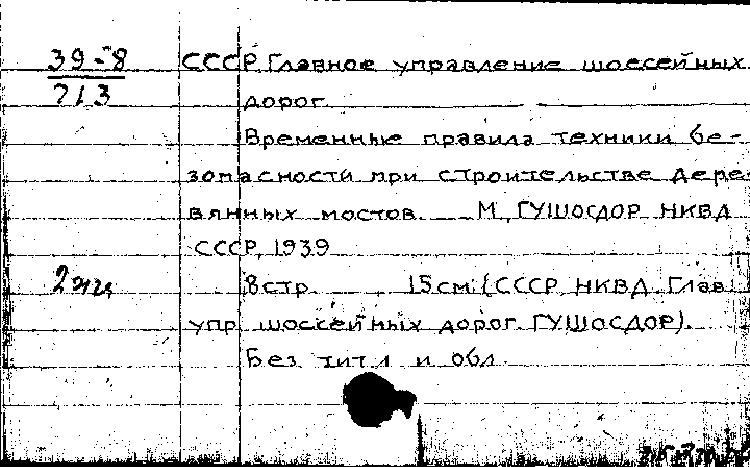 39-8
713
СССР. Главное управление шоссейных
дорог.
Временные правила техники бе-
зопасности при строительстве дере-
вянных мостов. М, ГУШОСДОР НКВД
СССР, 1939
2 экц
8 стр. 15 см. (СССР. НКВД. Глав.
упр. шоссейных дорог. ГУШОСДОР).
Без титл и обл.